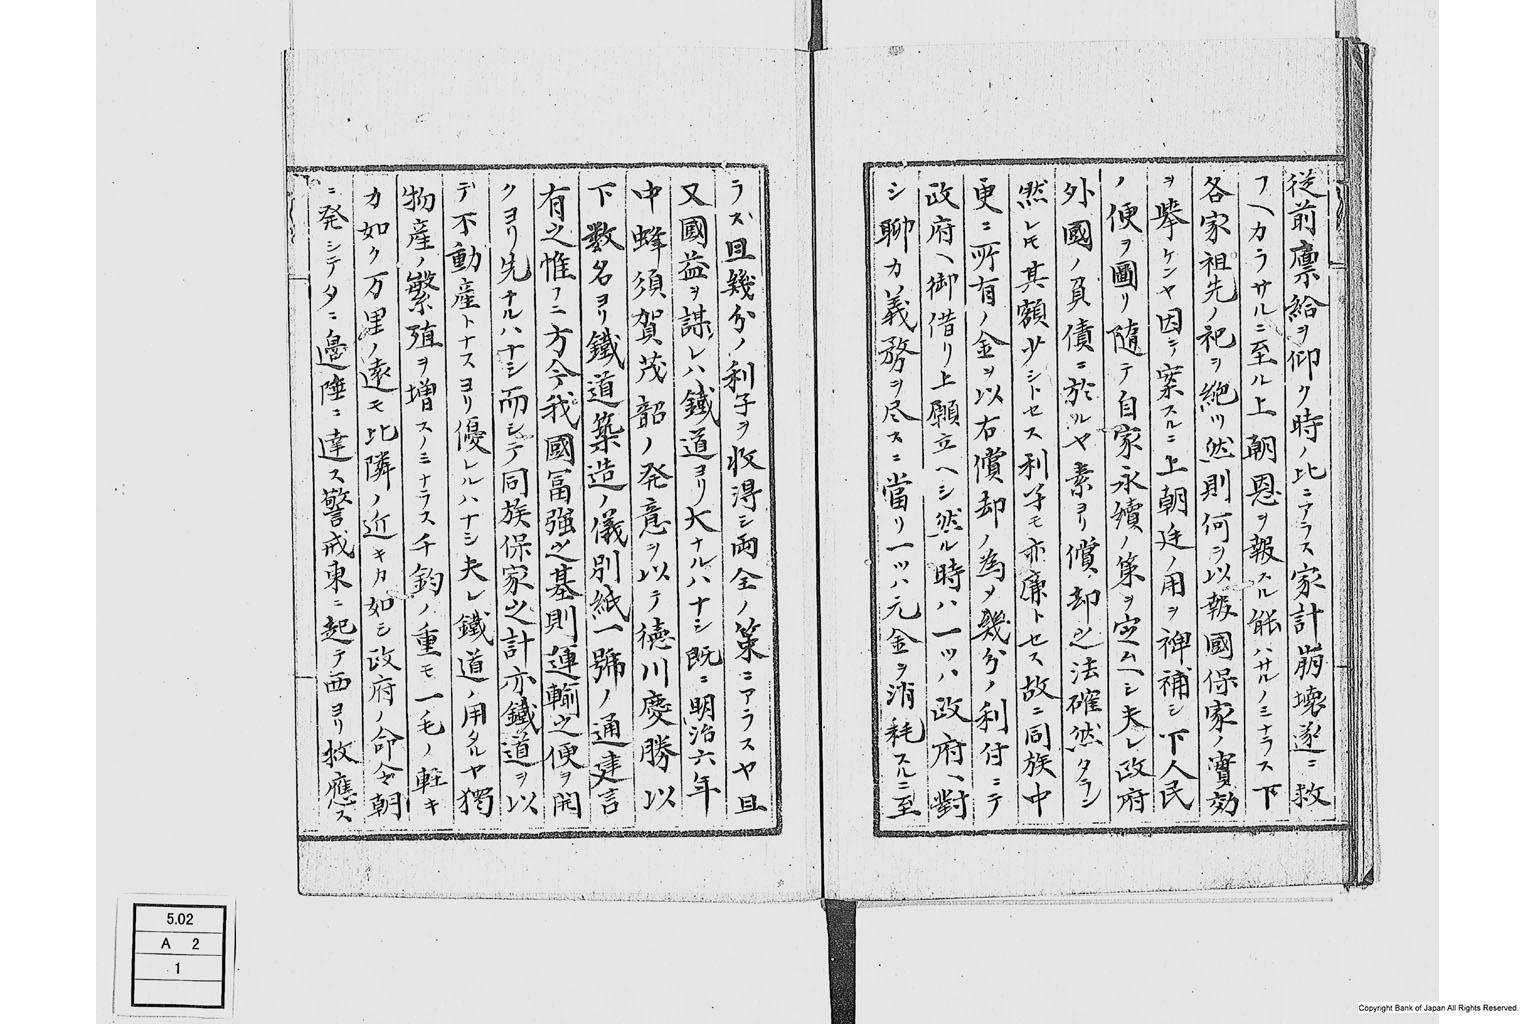 従前廩給ヲ仰ク時ノ比ニアラス家計崩壊遂ニ救
フヘカラサルニ至ル上朝恩ヲ報スル能ハサルノミナラス下
各家祖先ノ祀ヲ絶ツ然則何ヲ以報國保家ノ實効
ヲ挙ケンヤ因テ案スルニ上朝廷ノ用ヲ裨補シ下人民
ノ便ヲ圖リ随テ自家永續ノ策ヲ定ムヘシ夫レ政府
外國ノ負債ニ於ルヤ素ヨリ償却之法確然タラン
然レ𪜈其額少シトセス利子モ亦廉トセス故ニ同族中
更ニ所有ノ金ヲ以右償却ノ為メ幾分ノ利付ニテ
政府ヘ御借リ上願立ヘシ然ル時ハ一ツハ政府ヘ對
シ聊カ義務ヲ尽スニ當リ一ツハ元金ヲ消耗スルニ至
ラス且幾分ノ利子ヲ收得シ両全ノ策ニアラスヤ且
又國益ヲ謀レハ鐵道ヨリ大ナルハナシ既ニ明治六年
中蜂須賀茂韶ノ発意ヲ以テ徳川慶勝以
下数名ヨリ鐵道築造ノ儀別紙一號ノ通建言
有之惟フニ方今我國冨強之基則運輸之便ヲ開
クヨリ先ナルハナシ而シテ同族保家之計亦鐵道ヲ以
テ不動産トナスヨリ優レルハナシ夫レ鐵道ノ用タルヤ獨
物産ノ繁殖ヲ増スノミナラス千鈞ノ重モ一毛ノ軽キ
カ如ク万里ノ遠モ比隣ノ近キカ如シ政府ノ命令朝
ニ発シテタニ邉陲ニ達ス警戒東ニ起テ西ヨリ救應ス
5.02
A 2
1
Copyright Bank of Japan All Rights Reserved.